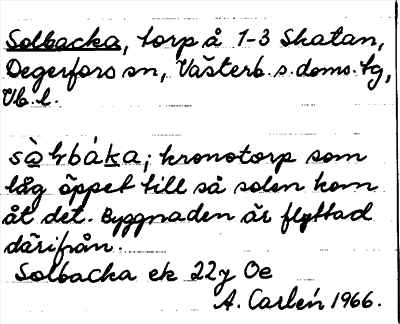 Solbacka, torp å 1-3 Skatan,
Degerfors sn, Västerb. s. doms. tg,
Vb. l.
sò̱ɫbáḵa; kronotorp som
låg öppet till så solen kom
åt det. Byggnaden är flyttad
därifrån.
Solbacka ek 22y Oe
A. Carlén 1966.